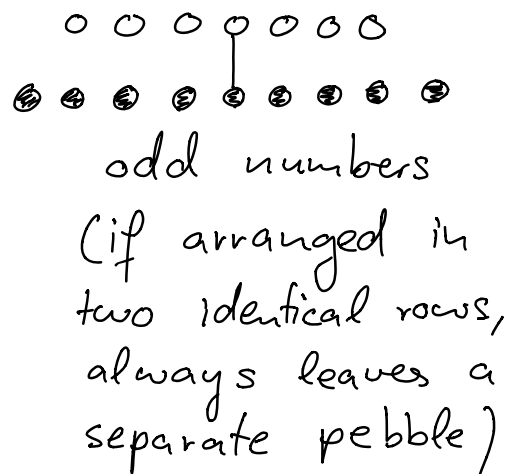 odd numbers
(if arranged in
two identical rows,
always leaves a
separate pebble)